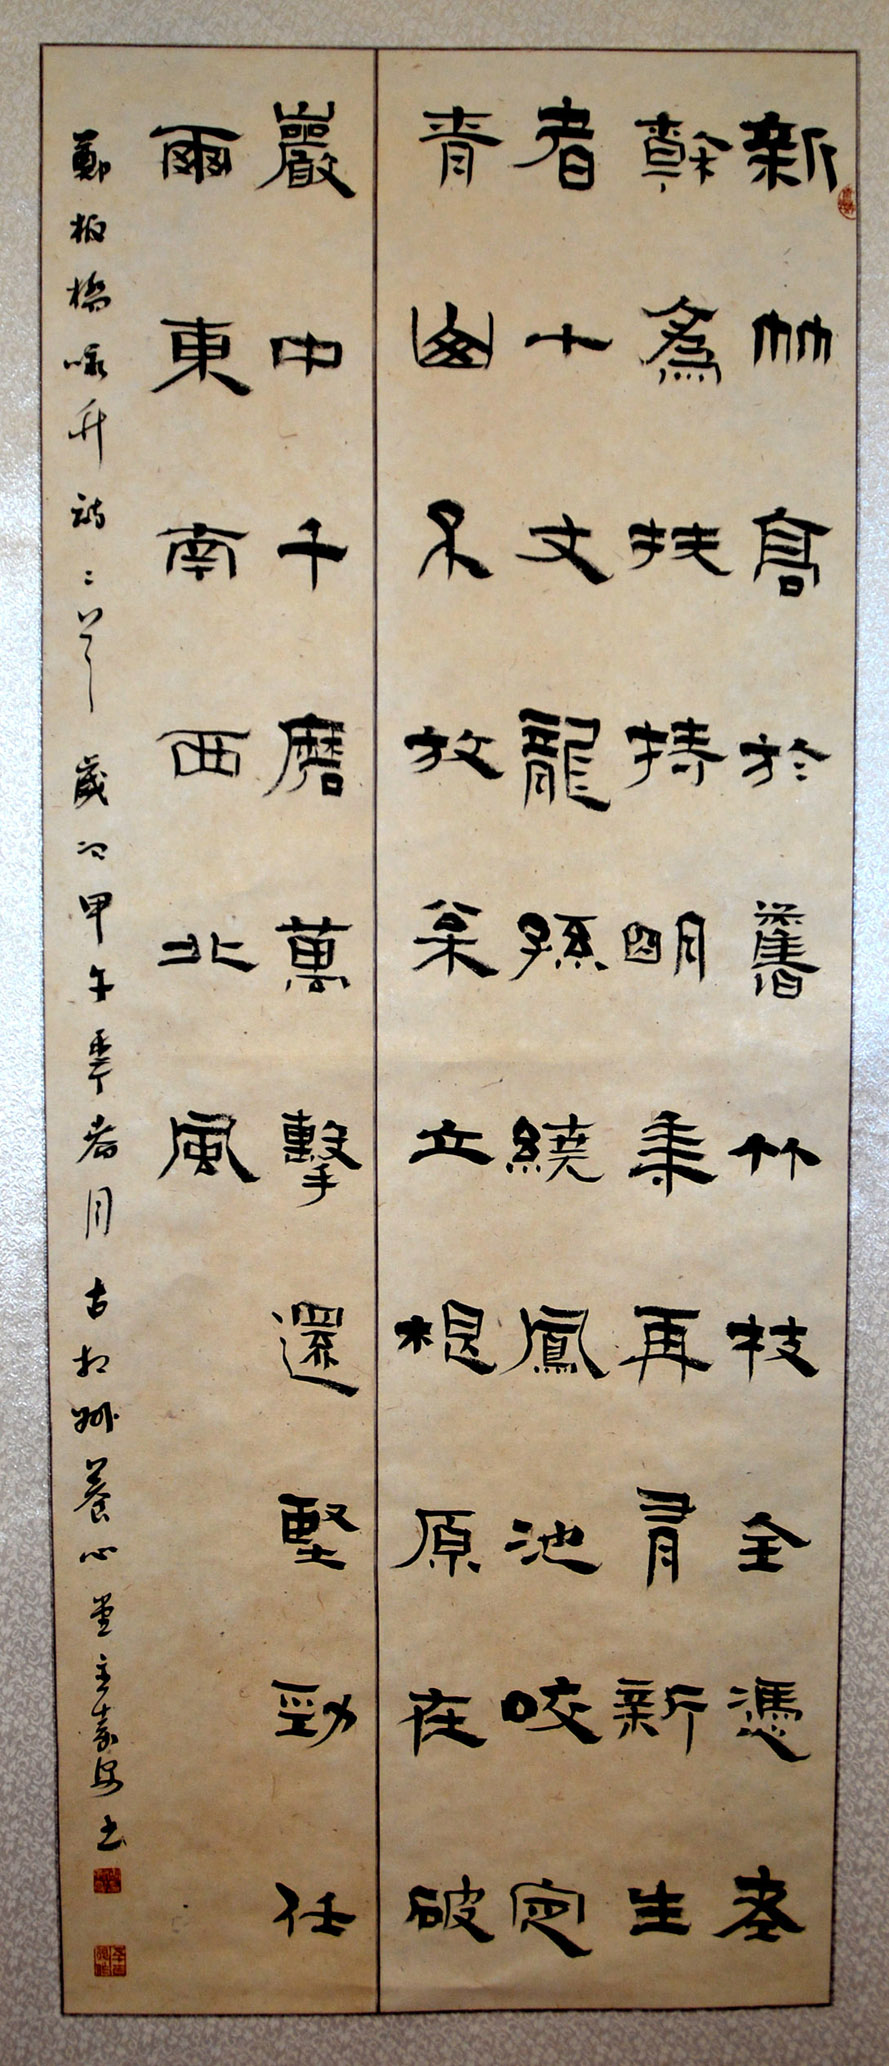 新竹高於舊竹枝全憑老
幹為扶持明年再有新生
者十丈龍孫繞鳳池咬定
青山不放枀立根原在破
巖中千磨萬擊還堅勁任
爾東南西北風
鄭板橋咏竹詩二首 歲次甲午春月 古相州養心堂主書